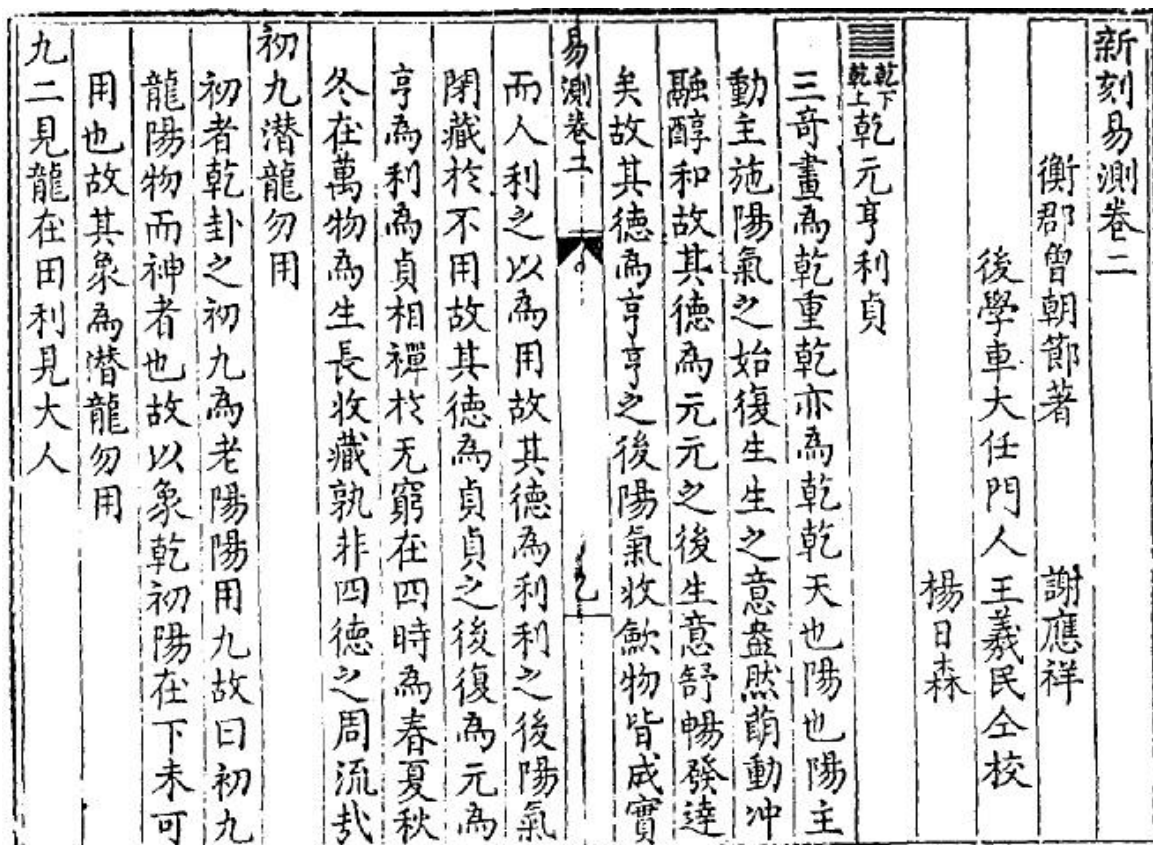 新刻易測卷二
衡郡曾朝節著 謝應祥
後學車大任門人王羲民仝校
楊日森
乾下乾上乾元亨利貞
三奇畫為乾重乾亦為乾乾天也陽也陽主
動主施陽氣之始復生生之意盎然萌動冲
融醇和故其德為元元之後生意舒暢發達
矣故其德為亨亨之後陽氣收歛物皆成實
易測卷二
而人利之以為用故其德為利利之後陽氣
閉藏於不用故其德為貞貞之後復為元為
亨為利為貞相禪於无窮在四時為春夏秋
冬在萬物為生長收藏孰非四德之周流哉
初九潜龍勿用
初者乾卦之初九為老陽陽用九故曰初九
龍陽物而神者也故以象乾初陽在下未可
用也故其象為潜龍勿用
九二見龍在田利見大人